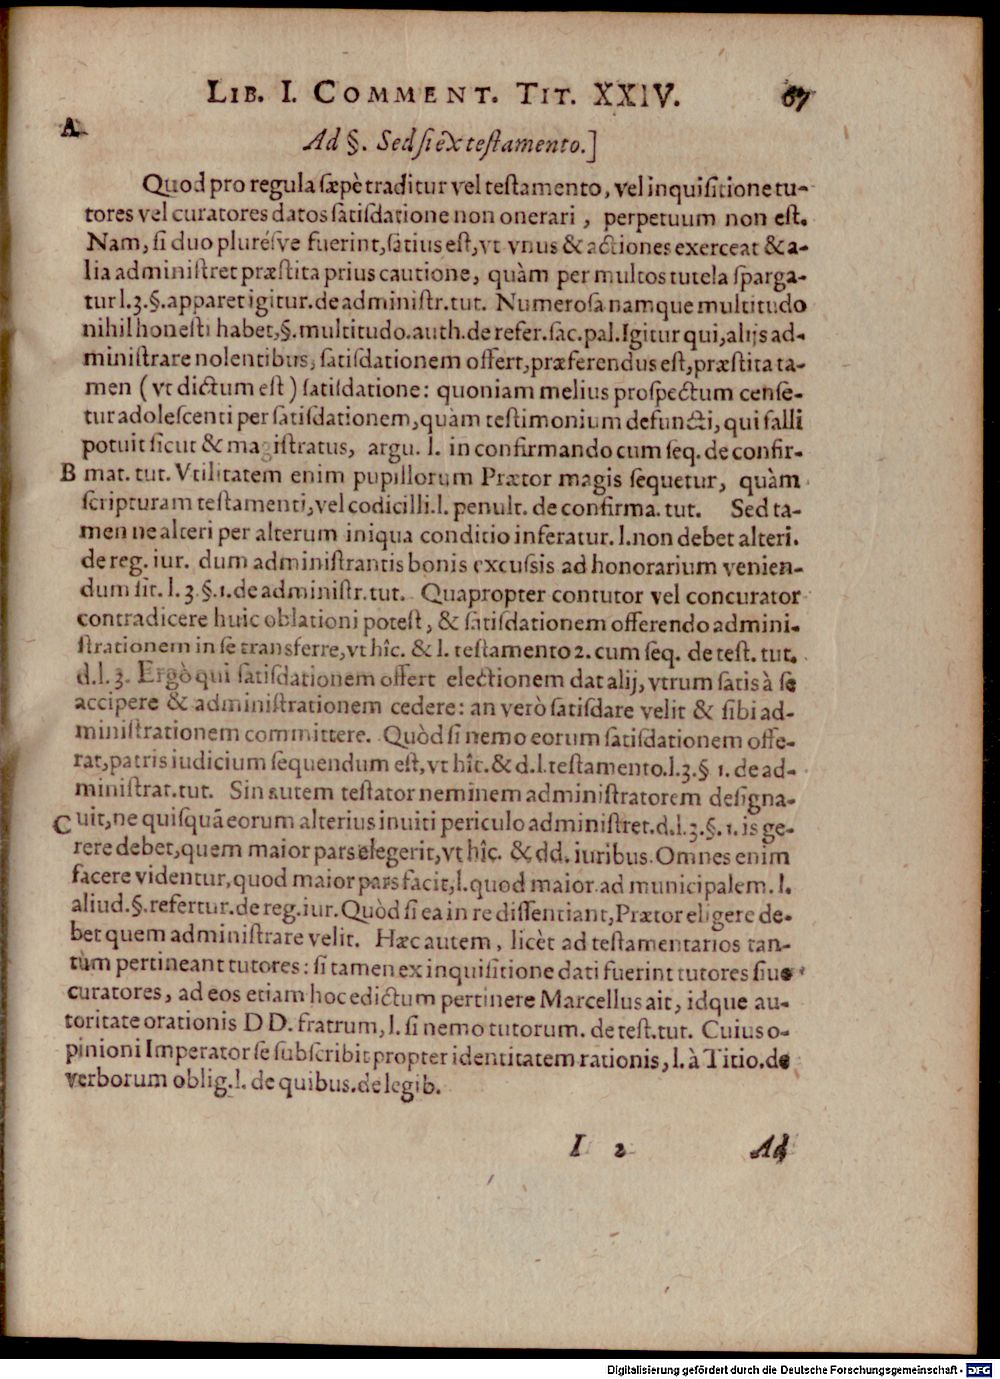 LIB. I. COMMENT. TIT. XXIV. 67
A
Ad §. Sed si ex testamento.]
Quod pro regula sæpè traditur vel testamento, vel inquisitione tu-
tores vel curatores datos satisdatione non onerari, perpetuum non est.
Nam, si duo plurésve fuerint, satius est, vt vnus & actiones exerceat & a-
lia administret præstita prius cautione, quàm per multos tutela sparga-
tur l.3.§.apparet igitur.de administr.tut. Numerosa namque multitudo
nihil honesti habet,§.multitudo.auth.de refer.sac.pal.Igitur qui,alijs ad-
ministrare nolentibus, satisdationem offert,præferendus est,præstita ta-
men (vt dictum est) satisdatione: quoniam melius prospectum cense-
tur adolescenti per satisdationem, quàm testimonium defuncti, qui falli
potuit sicut & magistratus, argu. l. in confirmando cum seq. de confir-
B mat. tut. Vtilitatem enim pupillorum Prætor magis sequetur, quàm
scripturam testamenti, vel codicilli.l. penult. de confirma. tut. Sed ta-
men ne alteri per alterum iniqua conditio inferatur. l.non debet alteri.
de reg. iur. dum administrantis bonis excussis ad honorarium venien-
dum sit. l. 3 §.1.de administr.tut. Quapropter contutor vel concurator
contradicere huic oblationi potest, & satisdationem offerendo admini-
strationem in se transferre,vt hîc. & l. testamento 2. cum seq. de test. tut.
d.l. 3. Ergò qui satisdationem offert electionem dat alij, vtrum satis à se
accipere & administrationem cedere: an verò satisdare velit & sibi ad-
ministrationem committere. Quòd si nemo eorum satisdationem offe-
rat,patris iudicium sequendum est, vt hîc.& d.l.testamento.l.3.§ 1. de ad-
ministrat.tut. Sin autem testator neminem administratorem designa-
C uit,ne quisquã eorum alterius inuiti periculo administret.d.l.3.§.1. is ge-
rere debet,quem maior pars elegerit, vt hîc. & dd. iuribus. Omnes enim
facere videntur, quod maior pars facit, l.quod maior.ad municipalem. l.
aliud.§.refertur.de reg.iur.Quòd si ea in re dissentiant, Prætor eligere de-
bet quem administrare velit. Hæc autem, licèt ad testamentarios tan-
tùm pertineant tutores: si tamen ex inquisitione dati fuerint tutores siue
curatores, ad eos etiam hoc edictum pertinere Marcellus ait, idque au-
toritate orationis D D. fratrum, l. si nemo tutorum. de test.tut. Cuius o-
pinioni Imperator se subscribit propter identitatem rationis, l. à Titio.de
verborum oblig.l. de quibus.de legib.
I 2 Ad
Digitalisierung gefördert durch die Deutsche Forschungsgemeinschaft - DFG